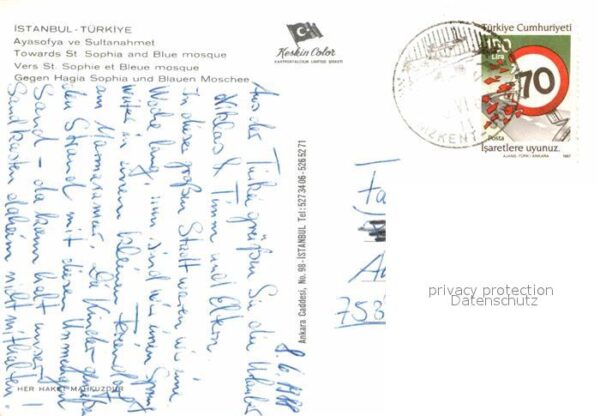 İSTANBUL - TÜRKİYE
Ayasofya ve Sultanahmet
Towards St. Sophia and Blue mosque
Vers St. Sophie et Bleue mosque
Gegen Hagia Sophia und Blauen Moschee
Keskin Color
KARTPOSTALCILIK LIMITED ŞİRKETİ
Türkiye Cumhuriyeti
Lira
70
Posta
İşaretlere uyunuz.
AJANS-TÜRK/ANKARA 1987
Ankara Caddesi, No. 98-İSTANBUL Tel: 5273406-5265271
HER HAKKI MAHFUZDUR
8.6.1988
Aus der Türkei grüßen Sie die Urlauber
Niklas & Timm und Eltern
In dieser großen Stadt waren wir eine
Woche lang, nun sind wir einen Sprung
weiter in einem kleinen Feriendorf
am Marmarameer. Die Kinder genießen
den Strand mit diesen Unmengen
Sand - da kann halt unser
Sandkasten daheim nicht mithalten!
Fa
758
privacy protection
Datenschutz